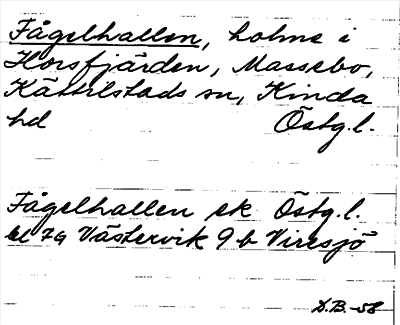 Fågelhallen, holme i
Horsfjärden, Massebo,
Kättilstads sn, Kinda
hd Östg.l.
Fågelhallen ek Östg.l.
bl 79 Västervik 9 b Viresjö
D.B. -58